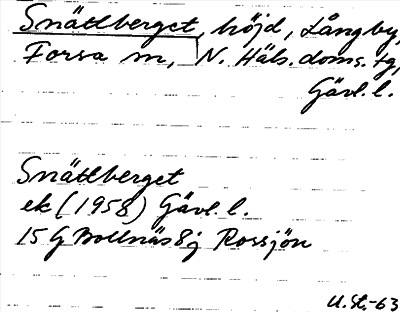 Snättberget, höjd, Långby,
Forsa sn, N. Häls. doms. tg,
Gävl. l.
Snättberget
ek (1958) Gävl. l.
15 G Bollnäs 8 j Rossjön
U. St. -63